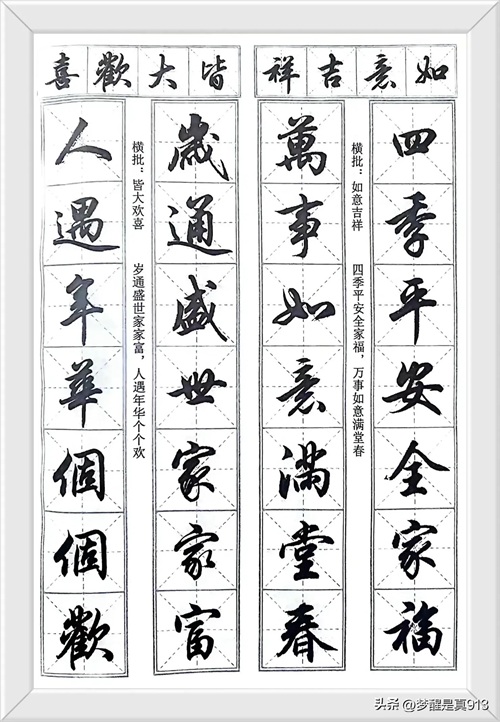 如意吉祥
四季平安全家福
横批：如意吉祥 四季平安全家福，万事如意满堂春
萬事如意滿堂春
皆大歡喜
歲通盛世家家富
横批：皆大欢喜 岁通盛世家家富，人遇年华个个欢
人遇年華個個歡
头条 @梦醒是真913